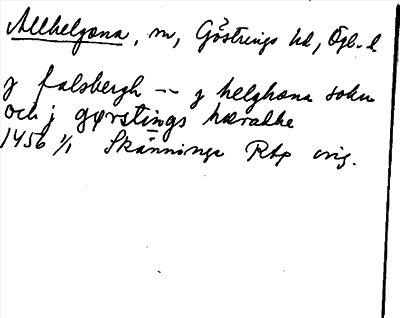 Allhelgona, sn, Göstrings hd, Ögl. l
y falsbergh -- y helghona sokn
och j gørstings hæradhe
1456 1/1 Skänninge Rtp orig.